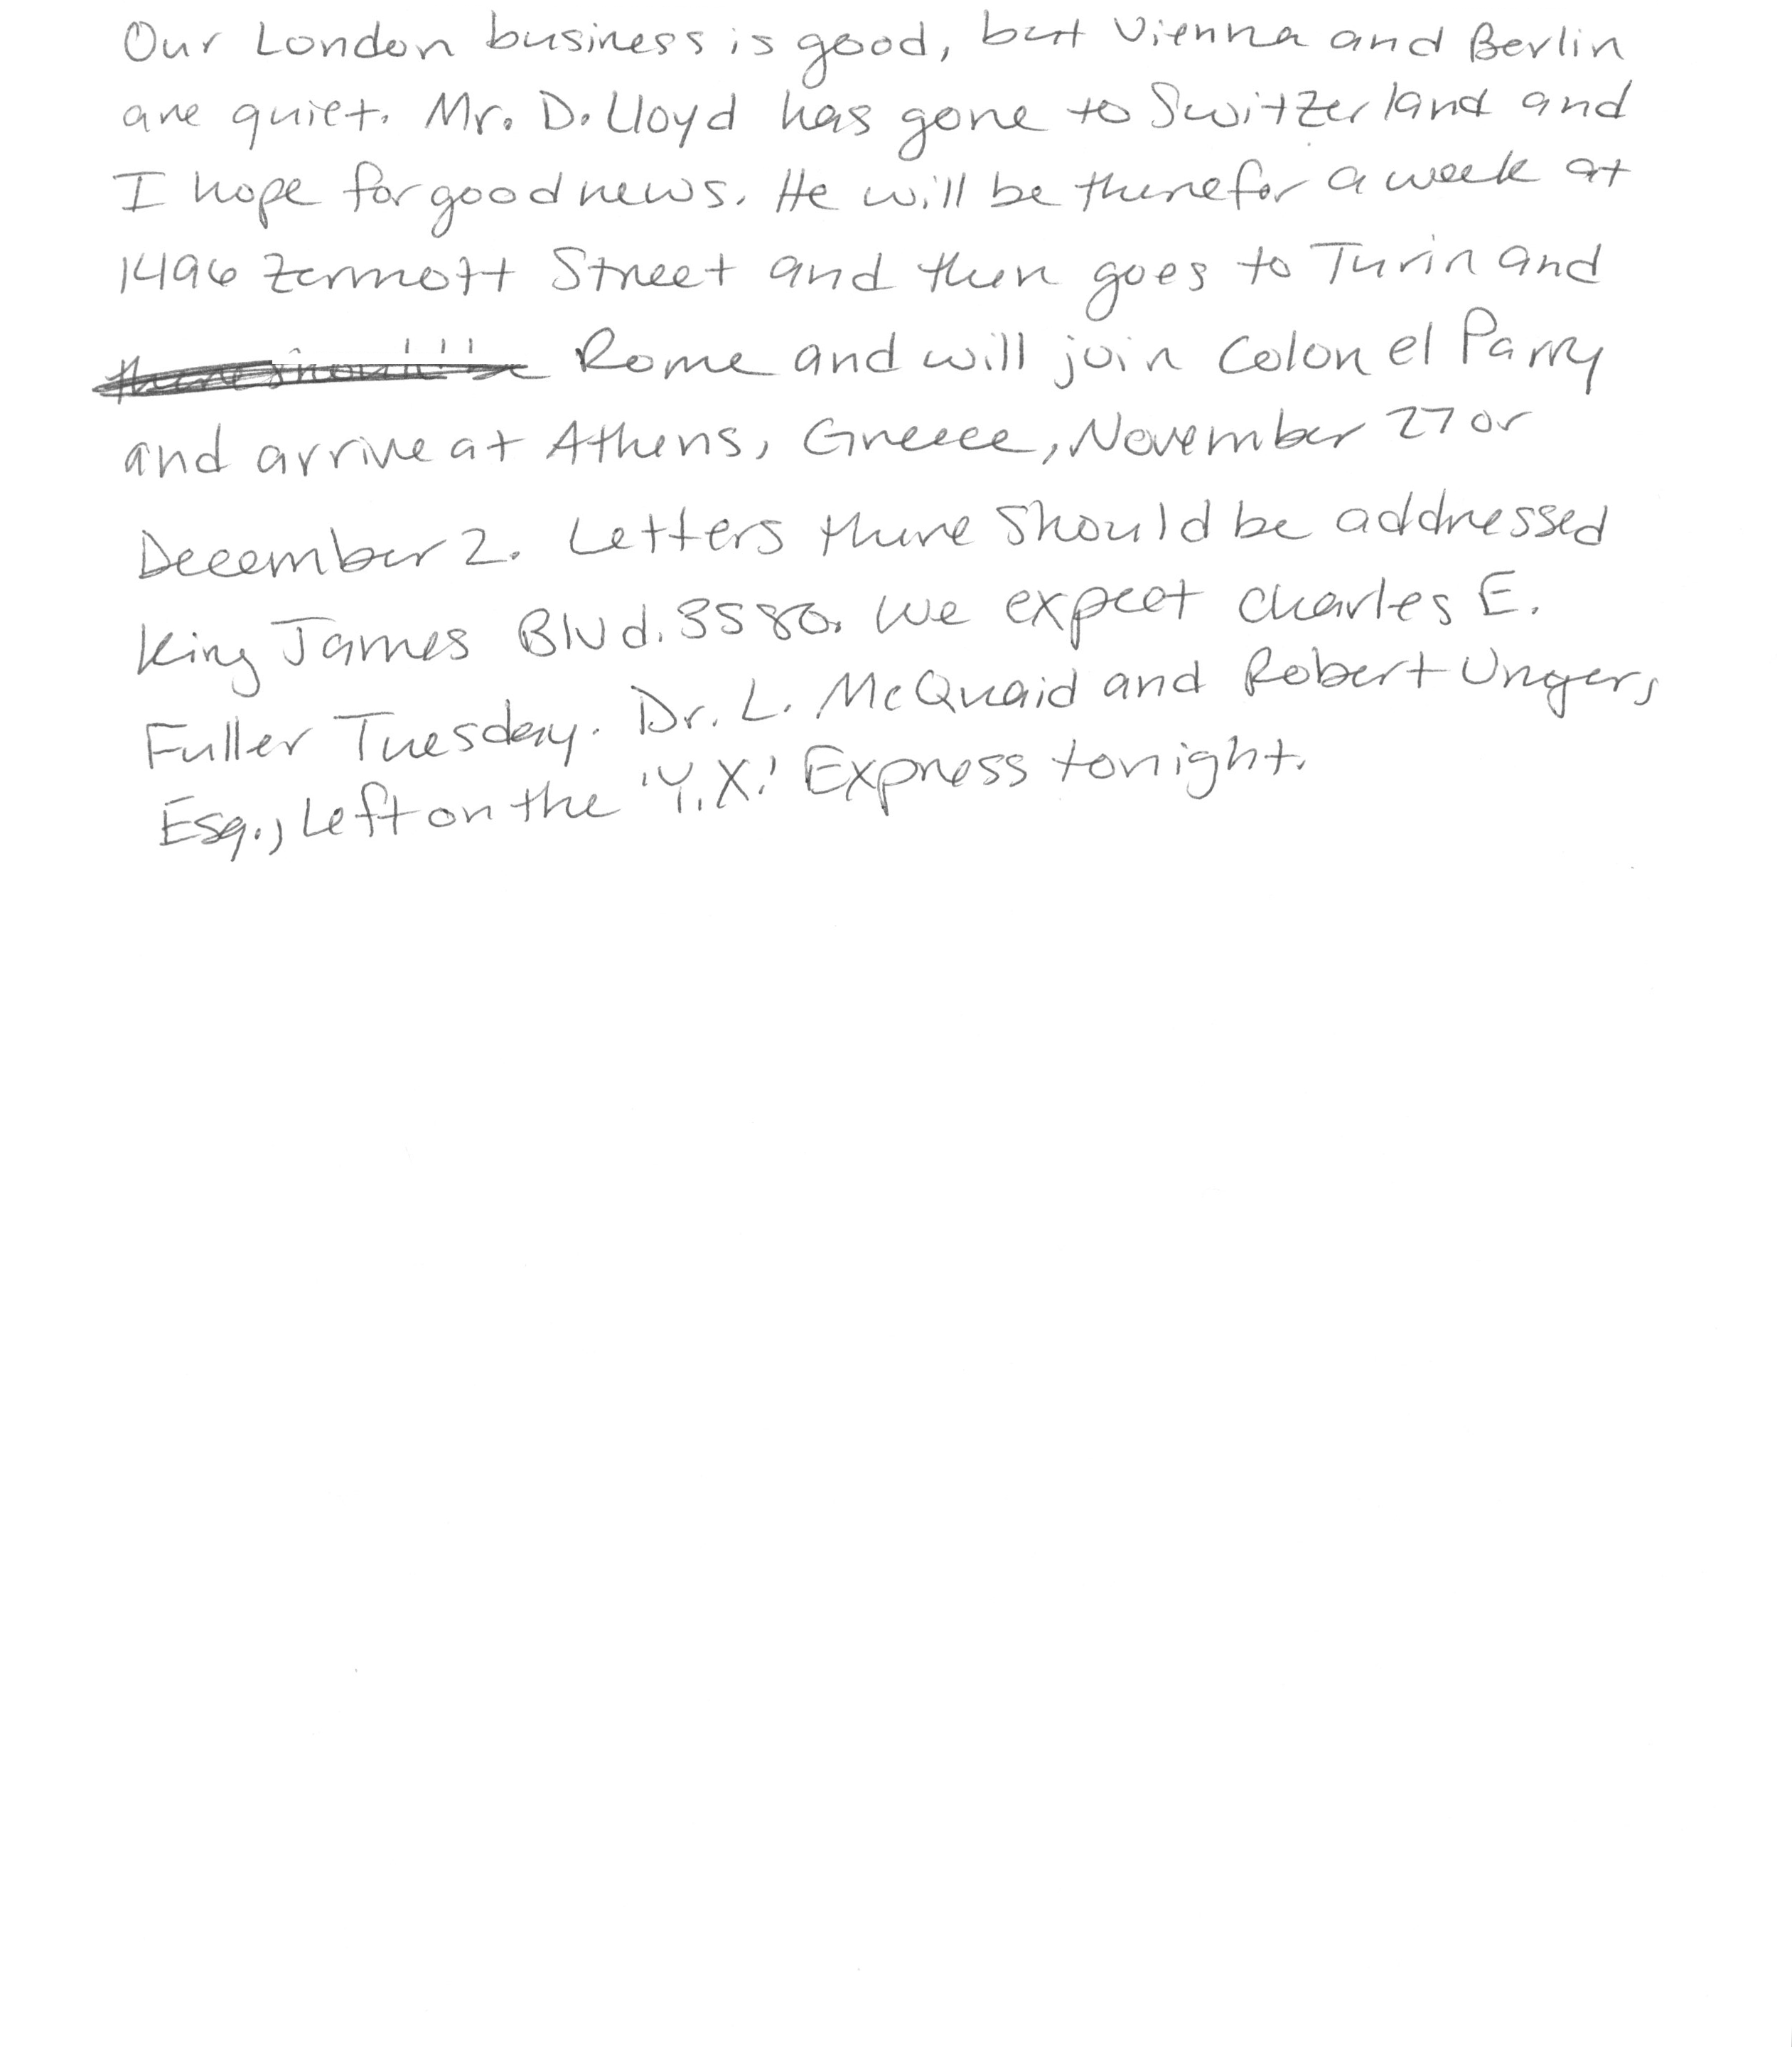 Our London business is good, but Vienna and Berlin
are quiet. Mr. D. Lloyd has gone to Switzerland and
I hope for good news. He will be there for a week at
1496 Zermott Street and then goes to Turin and
Rome and will join Colonel Parry
and arrive at Athens, Greece, November 27 or
December 2. Letters there should be addressed
King James Blvd. 3580. We expect Charles E.
Fuller Tuesday. Dr. L. McQuaid and Robert Unger,
Esq., Left on the 'Y.X.' Express tonight.